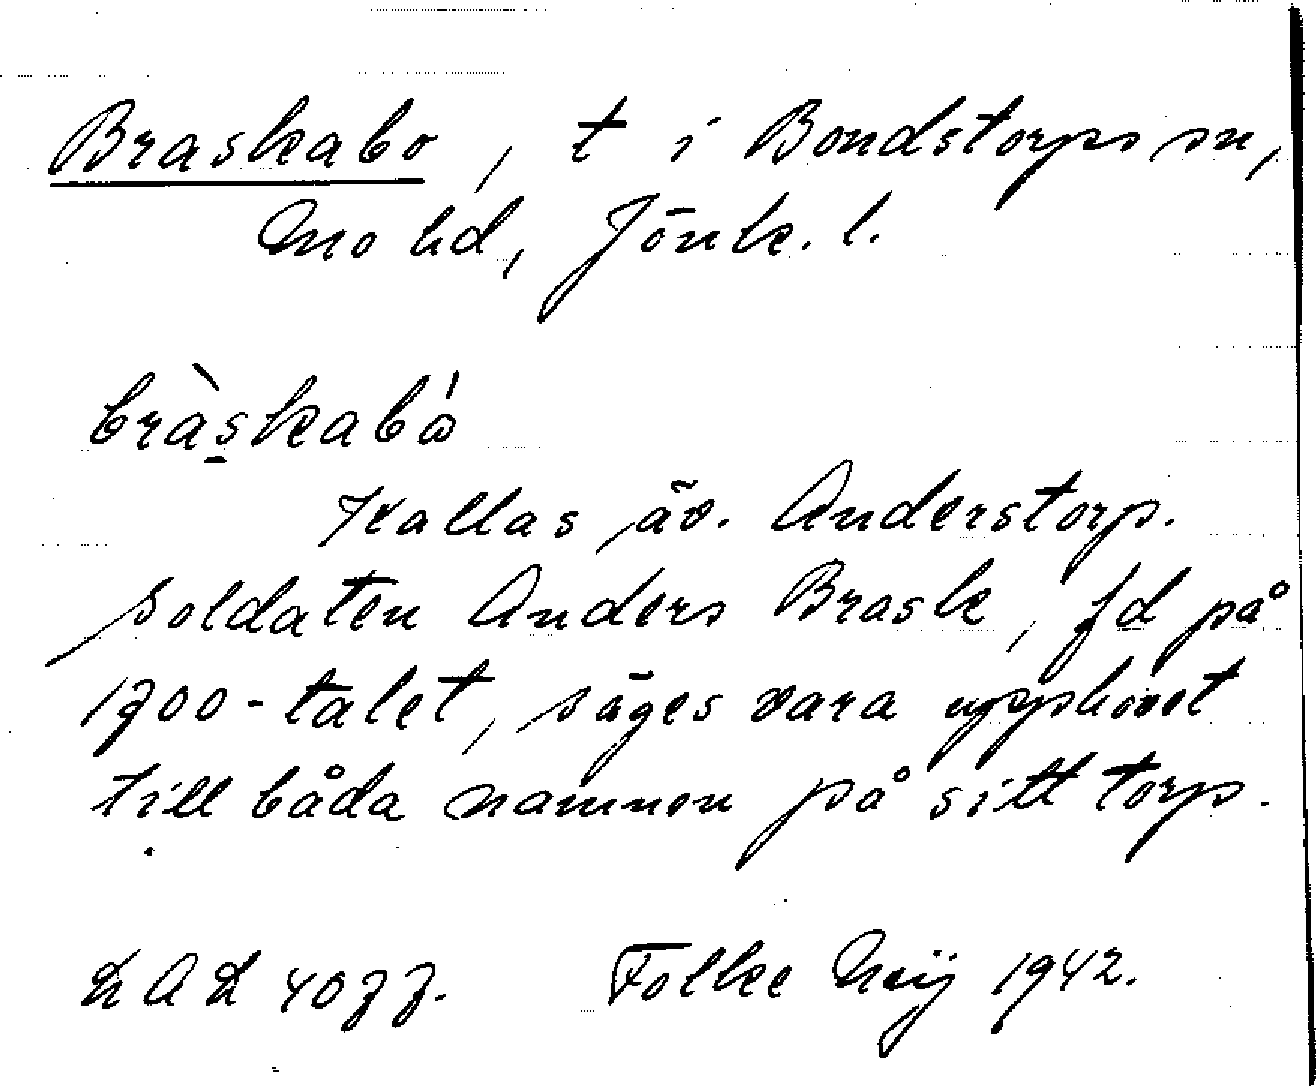 Braskabo, t i Bondstorps sn,
Mo hd, Jönk. l.
bràskabó
Kallas äv. Anderstorp.
soldaten Anders Brask, fd på
1700-talet, säges vara upphovet
till båda namnen på sitt torp.
4077. Folke 1942.